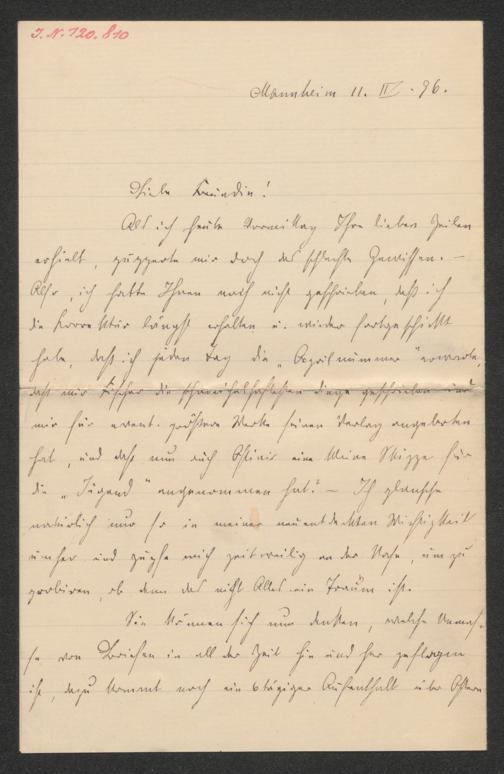 J.N. 120.810
Mannheim 11. IV. 96.
Liebe Freundin!
Als ich heute Vormittag Ihre lieben Zeilen
erhielt, pupperte mir doch das schlechte Gewissen. —
Also, ich hatte Ihnen noch nicht geschrieben, daß ich
die Korrektur längst erhalten u. wieder fortgeschickt
habe, daß ich jeden Tag die „Aprilnummer" erwarte,
daß mir Fischer die schmeichelhaftesten Dinge geschrieben und
mir für event. größere Werke seinen Verlag angeboten
hat, und daß nun auch Ostini eine kleine Skizze für
die „Jugend" angenommen hat? — Ich plansche
natürlich nur so in meiner neuentdeckten Wichtigkeit
umher und zupfe mich zeitweilig an der Nase, um zu
probiren, ob denn das nicht Alles ein Traum ist.
Sie können sich nun denken, welche Unmas-
se von Briefen in all der Zeit hin und her geflogen
ist, dazu kommt noch ein 6tägiger Aufenthalt über Ostern